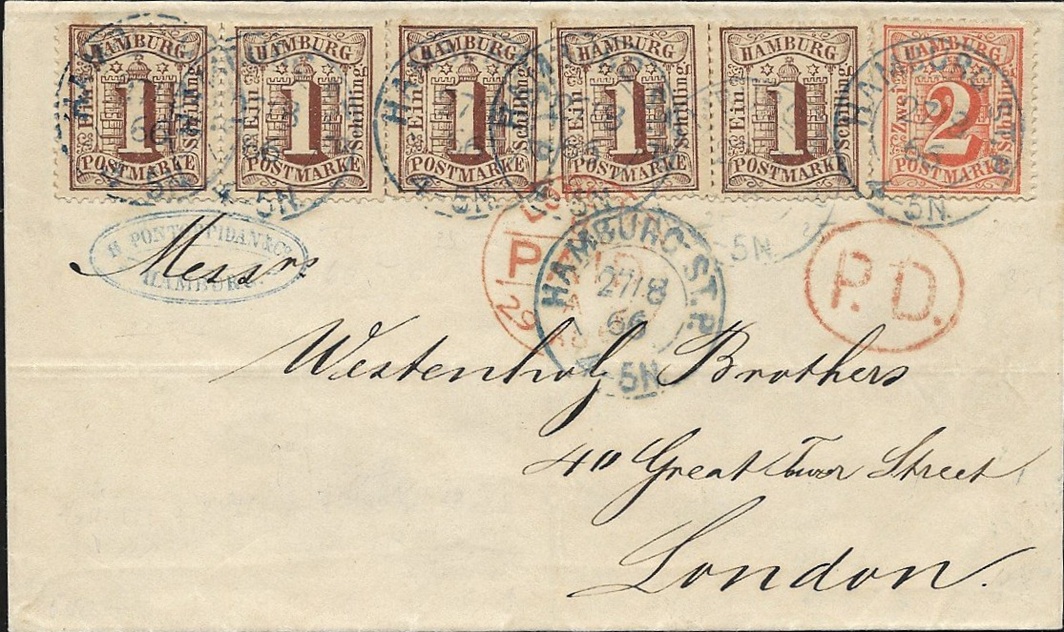 HAMBURG HAMBURG HAMBURG HAMBURG HAMBURG HAMBURG
Ein 1 Schilling Ein 1 Schilling Ein 1 Schilling Ein 1 Schilling Ein 1 Schilling Zwei 2
POSTMARKE POSTMARKE POSTMARKE POSTMARKE POSTMARKE POSTMARKE
4-5N
H. PONTOPPIDAN & Co.
HAMBURG.
HAMBURG ST. P.
27 18
66
4-5N
P.D.
Messrs
Westenholz Brothers
40 Great Tower Street
London.